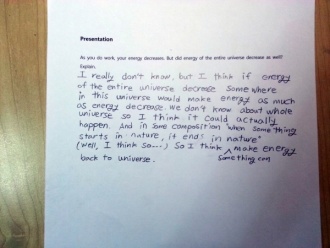 Presentation
As you do work, your energy decreases. But did energy of the entire universe decrease as well?
Explain.
I really don't know, but I think if energy
of the entire universe decrease some where
in this universe would make energy as much
as energy decrease. We don't know about whole
universe so I think it could actually
happen. And in some composition "when some thing
starts in nature, it ends in nature"
(well, I think so...) So I think something can make energy
back to universe.